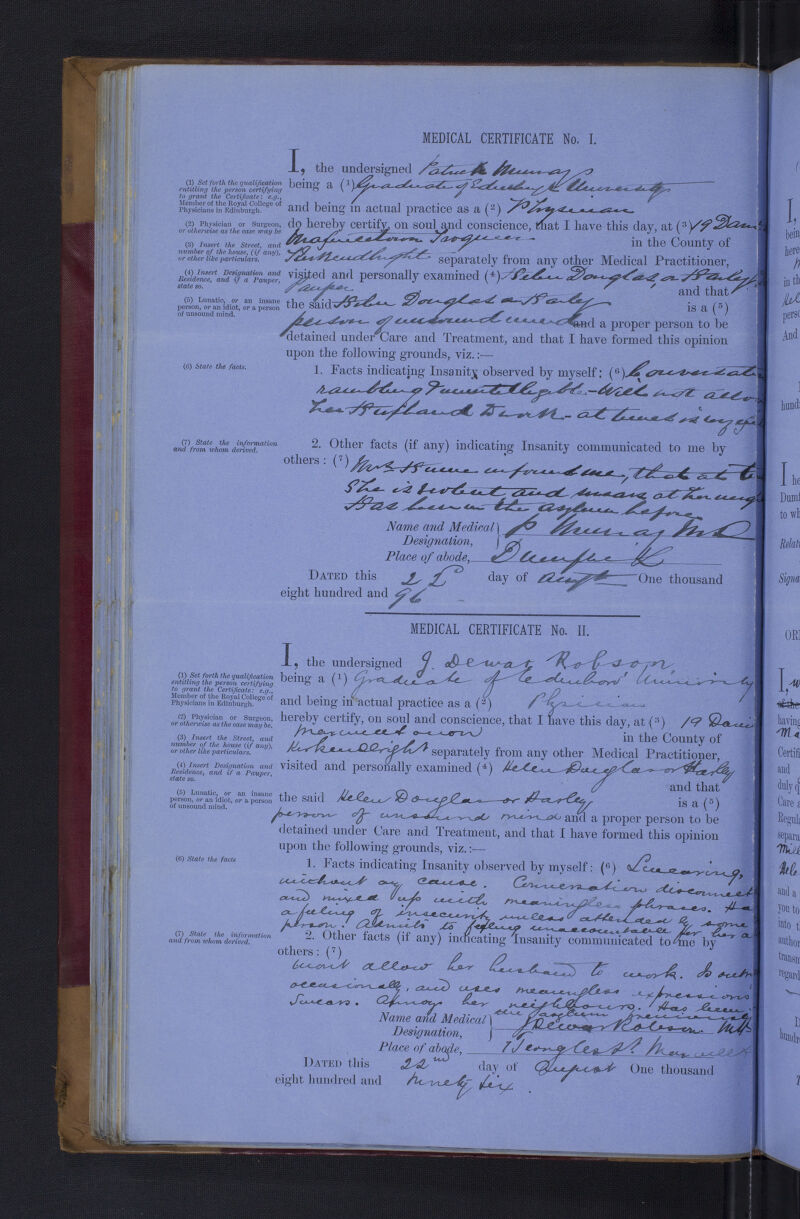 MEDICAL CERTIFICATE No. I.
I, the undersigned Patrick Murray
being a (1) Graduate of Edinburgh University
and being in actual practice as a (2) Physician
do hereby certify, on soul and conscience, that I have this day, at (3) 19
Maxwelltown Troqueer in the County of
Kirkcudbright separately from any other Medical Practitioner,
visited and personally examined (4) Helen Douglas or Harley
Pauper and that
the said Helen Douglas or Harley is a (5)
person of unsound mind and a proper person to be
detained under Care and Treatment, and that I have formed this opinion
upon the following grounds, viz.:—
1. Facts indicating Insanity observed by myself: (6)
rambling & unintelligible.- Will not
her Husband to work - at times is
2. Other facts (if any) indicating Insanity communicated to me by
others: (7) Mrs informed me, that at
She is violent and swears at her
Has been in the asylum before
Name and Medical Designation, P Murray MD
Place of abode, Dumfries
DATED this 22d day of August One thousand
eight hundred and 96
(1) Set forth the qualification
entitling the person certifying
to grant the Certificate: e.g.,
Member of the Royal College of
Physicians in Edinburgh.
(2) Physician or Surgeon,
or otherwise as the case may be
(3) Insert the Street, and
number of the house, (if any),
or other like particulars.
(4) Insert Designation and
Residence, and if a Pauper,
state so.
(5) Lunatic, or an insane
person, or an idiot, or a person
of unsound mind.
(6) State the facts.
(7) State the information
and from whom derived.
MEDICAL CERTIFICATE No. II.
I, the undersigned J. Dewar Robson
being a (1) Graduate of Edinboro' University
and being in actual practice as a (2) Physician
hereby certify, on soul and conscience, that I have this day, at (3) 19
in the County of
Kirkcudbright separately from any other Medical Practitioner,
visited and personally examined (4) Helen Douglas or Harley
and that
the said Helen Douglas or Harley is a (5)
person of unsound mind and a proper person to be
detained under Care and Treatment, and that I have formed this opinion
upon the following grounds, viz.:—
1. Facts indicating Insanity observed by myself: (6) Swearing,
without any cause. Conversation
and mixed up with meaningless phrases.
a feeling of insecurity unless attended by some
person. Admits to feeling unaccountable
2. Other facts (if any) indicating Insanity communicated to me by
others: (7)
wont allow her husband to work. Is
occasionally, and uses meaningless expressions
Swears. Annoys her neighbours. Has been
in the asylum previously
Name and Medical Designation, J Dewar Robson MB
Place of abode,
DATED this 22nd day of August One thousand
eight hundred and ninety six.
(1) Set forth the qualification
entitling the person certifying
to grant the Certificate: e.g.,
Member of the Royal College of
Physicians in Edinburgh.
(2) Physician or Surgeon,
or otherwise as the case may be.
(3) Insert the Street, and
number of the house (if any),
or other like particulars.
(4) Insert Designation and
Residence, and if a Pauper,
state so.
(5) Lunatic, or an insane
person, or an idiot, or a person
of unsound mind.
(6) State the facts
(7) State the information
and from whom derived.